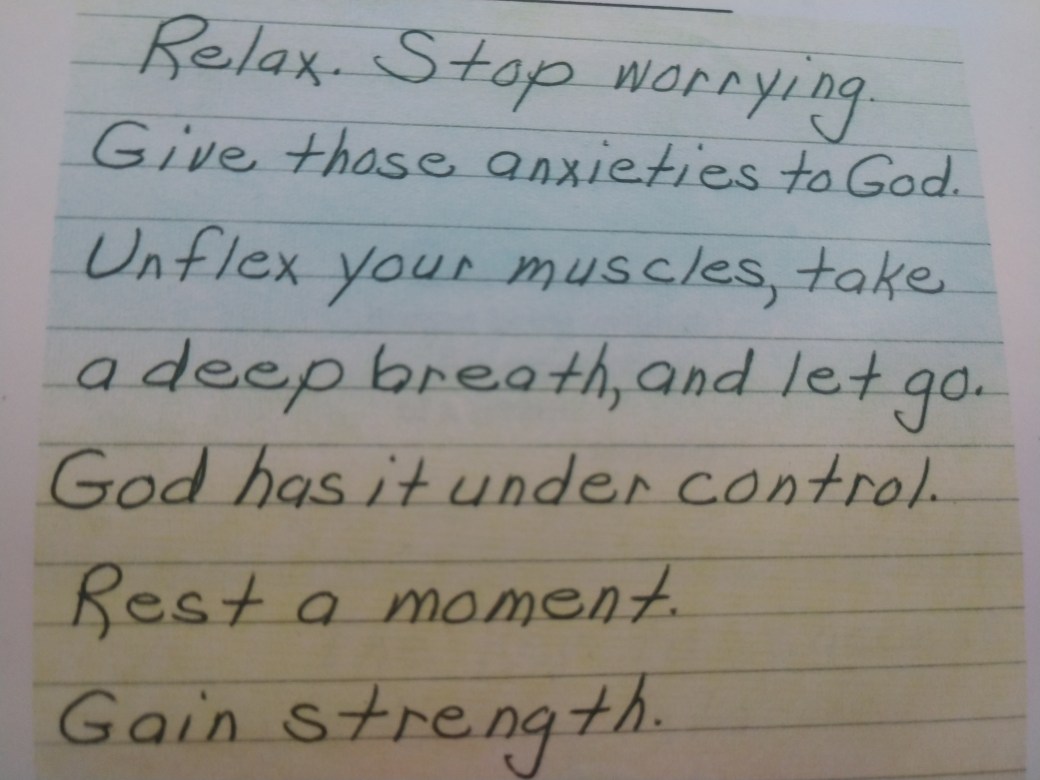 Relax. Stop worrying.
Give those anxieties to God.
Unflex your muscles, take
a deep breath, and let go.
God has it under control.
Rest a moment.
Gain strength.